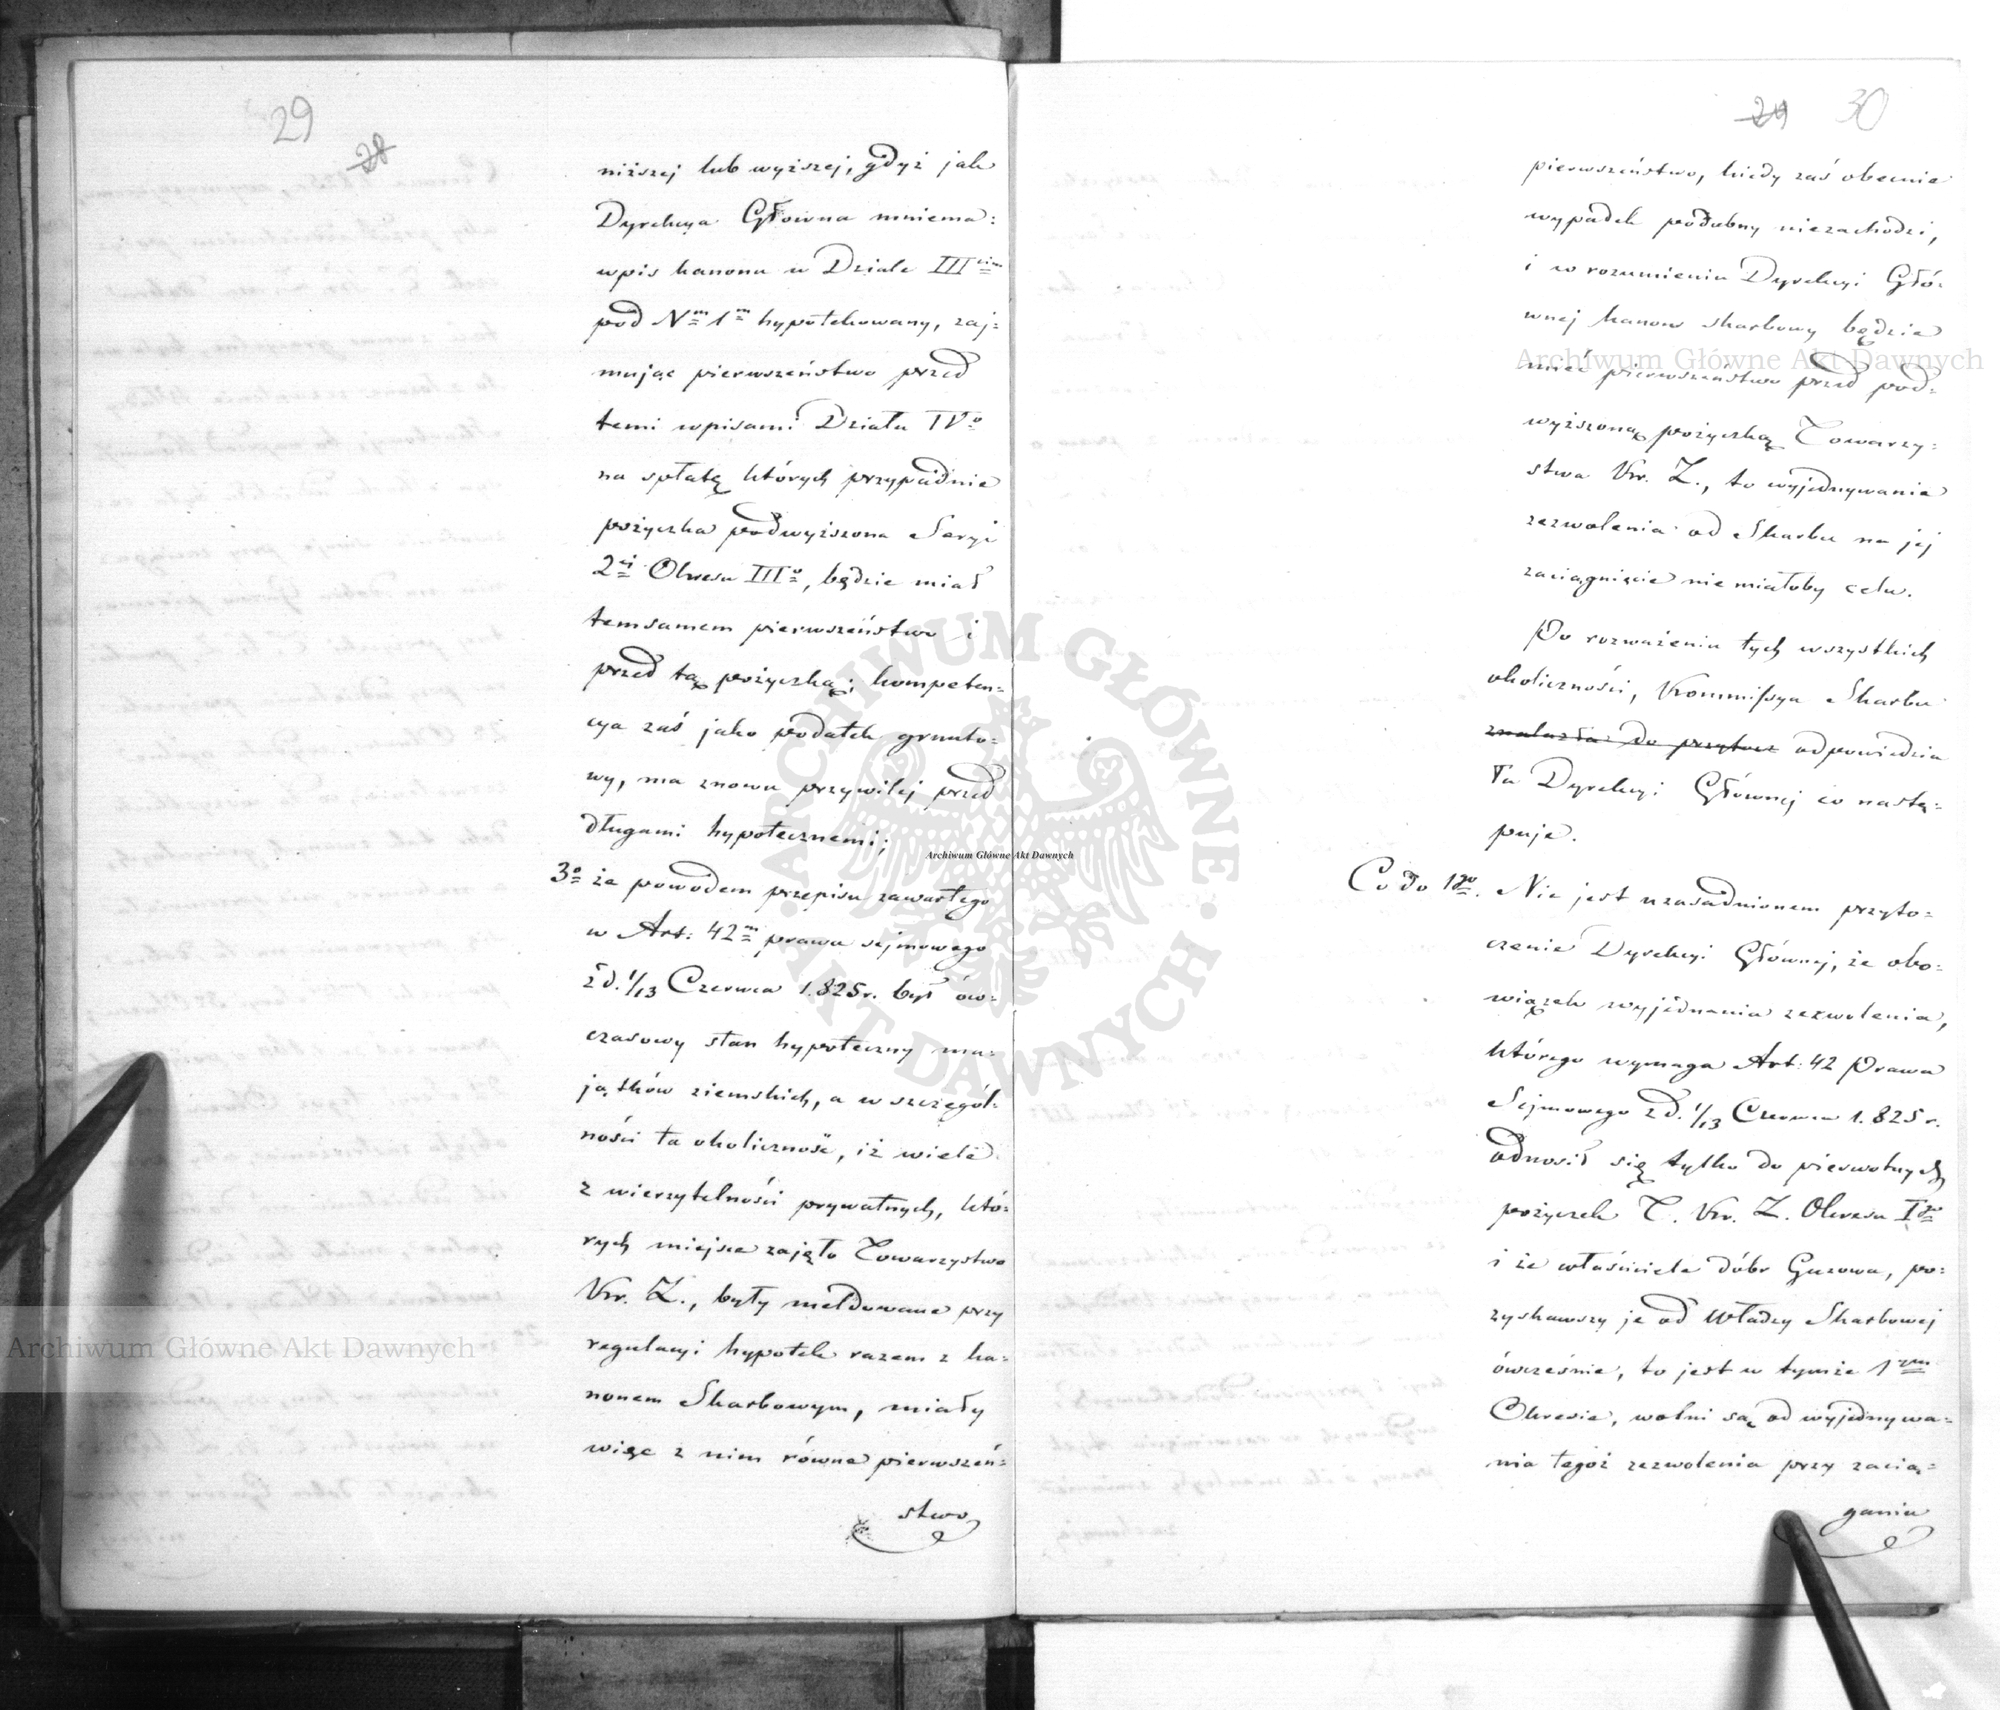 29
28
niższej lub wyższej, gdyż jak
Dyrekcya Główna mniema:
wpis kanonu w Dziale III cim
pod Nm 1m hypotekowany, zaj=
mując pierwszeństwo przed
temi wpisami Działu IVo
na spłatę których przypadnie
pożyczka podwyższona Seryi
2ej Okresu IIIo, będzie miał
temsamem pierwszeństwo i
przed tą pożyczką; kompeten=
cya zaś jako podatek grunto=
wy, ma znowu przywilej przed
długami hypotecznemi;
3o że powodem przepisu zawartego
w Art: 42m prawa sejmowego
z d. 1/13 Czerwca 1.825 r. był ów=
czasowy stan hypoteczny ma=
jątków ziemskich, a w szczegól=
ności ta okoliczność, iż wiele
z wierzytelności prywatnych, któ=
rych miejsce zajęło Towarzystwo
Kr. Z., były meldowane przy
regulacyi hypotek razem z ka=
nonem Skarbowym, miały
więc z nim równe pierwszeń=
stwo
29 30
pierwszeństwo, kiedy zaś obecnie
wypadek podobny niezachodzi,
i w rozumieniu Dyrekcyi Głó=
wnej kanon skarbowy będzie
mieć pierwszeństwo przed pod=
wyższoną pożyczką Towarzy=
stwa Kr. Z., to wyjednywanie
zezwolenia od Skarbu na jej
zaciągnięcie nie miałoby celu.
Po rozważeniu tych wszystkich
okoliczności, Kommissya Skarbu
znalazła do przytocz odpowiedzia
ła Dyrekcyi Głównej co nastę=
puje.
Co do 1go. Nie jest uzasadnionem przyto=
czenie Dyrekcyi Głównej, że obo=
wiązek wyjednania zezwolenia,
którego wymaga Art: 42 Prawa
Sejmowego z d. 1/13 Czerwca 1.825 r.
odnosił się tylko do pierwotnych
pożyczek T. Kr. Z. Okresu Igo
i że właściciele dóbr Guzowa, po=
zyskawszy je od Władzy Skarbowej
ówcześnie, to jest w tymże 1szm
Okresie, wolni są od wyjednywa=
nia tegoż zezwolenia przy zacią=
ganiu
Archiwum Główne Akt Dawnych
Archiwum Główne Akt Dawnych
Archiwum Główne Akt Dawnych
ARCHIWUM GŁÓWNE · AKT DAWNYCH ·